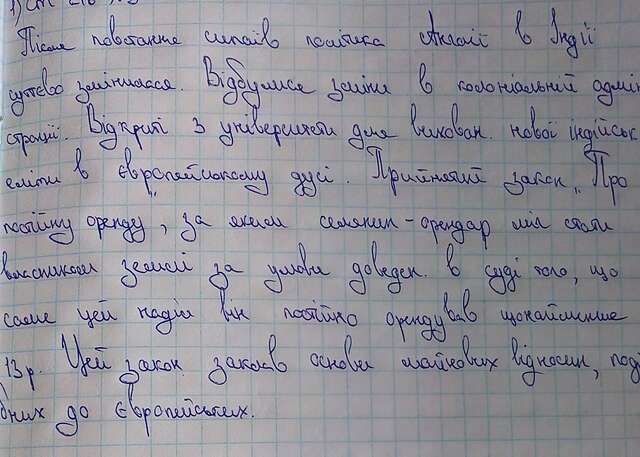 1) Ст 218 №3
Після повстання сипаїв політика Англії в Індії
суттєво змінилася. Відбулися зміни в колоніальній адміні
страції. Відкриті 3 університети для вихован. нової індійськ
еліти в європейському дусі. Прийнятий закон „Про
постійну оренду", за яким селянин-орендар міг стати
власником землі за умови доведен. в суді того, що
саме цей наділ він постійно орендував щонайменше
13 р. Цей закон заклав основи майнових відносин, поді
бних до європейських.